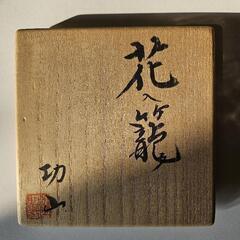 花入籠
功山